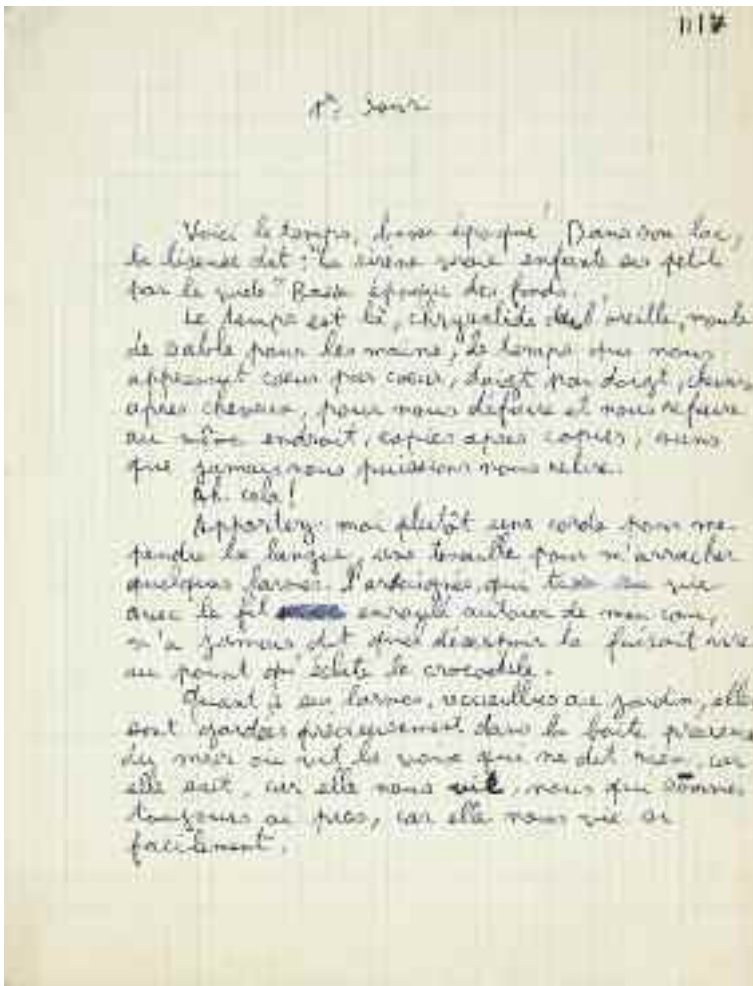 1er Jour
Voici le temps, basse époque ! Dans son lac,
la liseuse dit : "La sirène enfante ses petits
par le Basse époque des fonds.
Le temps est là, chrysalide de l'oreille, moule
de sable pour les mains, le temps que nous
apprenons coeur par coeur, doigt par doigt, cheveux
après cheveux, pour nous défaire et nous refaire
au même endroit, copies après copies, sans
que jamais nous puissions nous relire.
Ah. cela !
Apportez-moi plutôt une corde pour me
pendre la langue, une tenaille pour m'arracher
quelques larmes. L'araignée, qui sa vie
avec le fil enroulé autour de mon cou,
m'a jamais dit que désormais la ferait rire
au point qu'éclate le crocodile.
Quant à ses larmes, recueillies au jardin, elles
sont gardées précieusement dans la boîte
du mur où vit la voix qui ne dit rien, car
elle sait, car elle nous vit, nous qui sommes
toujours si près, car elle nous tue si
facilement.